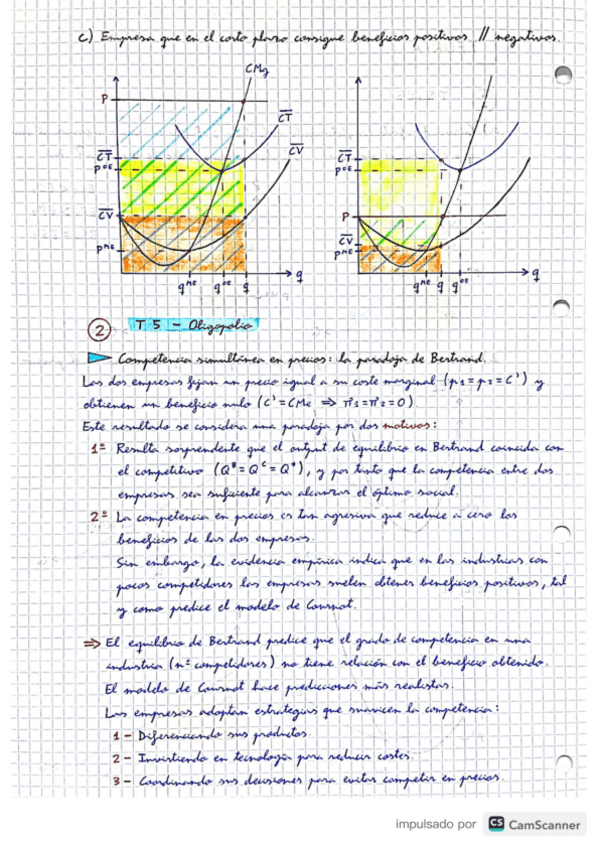 c) Empresa que en el corto plazo consigue beneficios positivos // negativos.
CMg
P
CT
CT
CV
P^OE
CV
P^ME
q^ME q^OE q q
CT
P^OE
P
CV
P^ME
q^ME q q^OE q
2 T 5 - Oligopolio
Competencia simultánea en precios: la paradoja de Bertrand.
Las dos empresas fijan un precio igual a su coste marginal (p1 = p2 = C') y
obtienen un beneficio nulo (C' = CMe ⇒ π1 = π2 = 0)
Este resultado se considera una paradoja por dos motivos:
1º Resulta sorprendente que el output de equilibrio en Bertrand coincida con
el competitivo (Q^B = Q^C = Q*), y por tanto que la competencia entre dos
empresas sea suficiente para alcanzar el óptimo social.
2º La competencia en precios es tan agresiva que reduce a cero los
beneficios de las dos empresas.
Sin embargo, la evidencia empírica indica que en las industrias con
pocos competidores las empresas suelen obtener beneficios positivos, tal
y como predice el modelo de Cournot.
⇒ El equilibrio de Bertrand predice que el grado de competencia en una
industria (nº competidores) no tiene relación con el beneficio obtenido.
El modelo de Cournot hace predicciones más realistas.
Las empresas adoptan estrategias que suavicen la competencia:
1 - Diferenciando sus productos.
2 - Invirtiendo en tecnología para reducir costes.
3 - Coordinando sus decisiones para evitar competir en precios.
impulsado por CS CamScanner